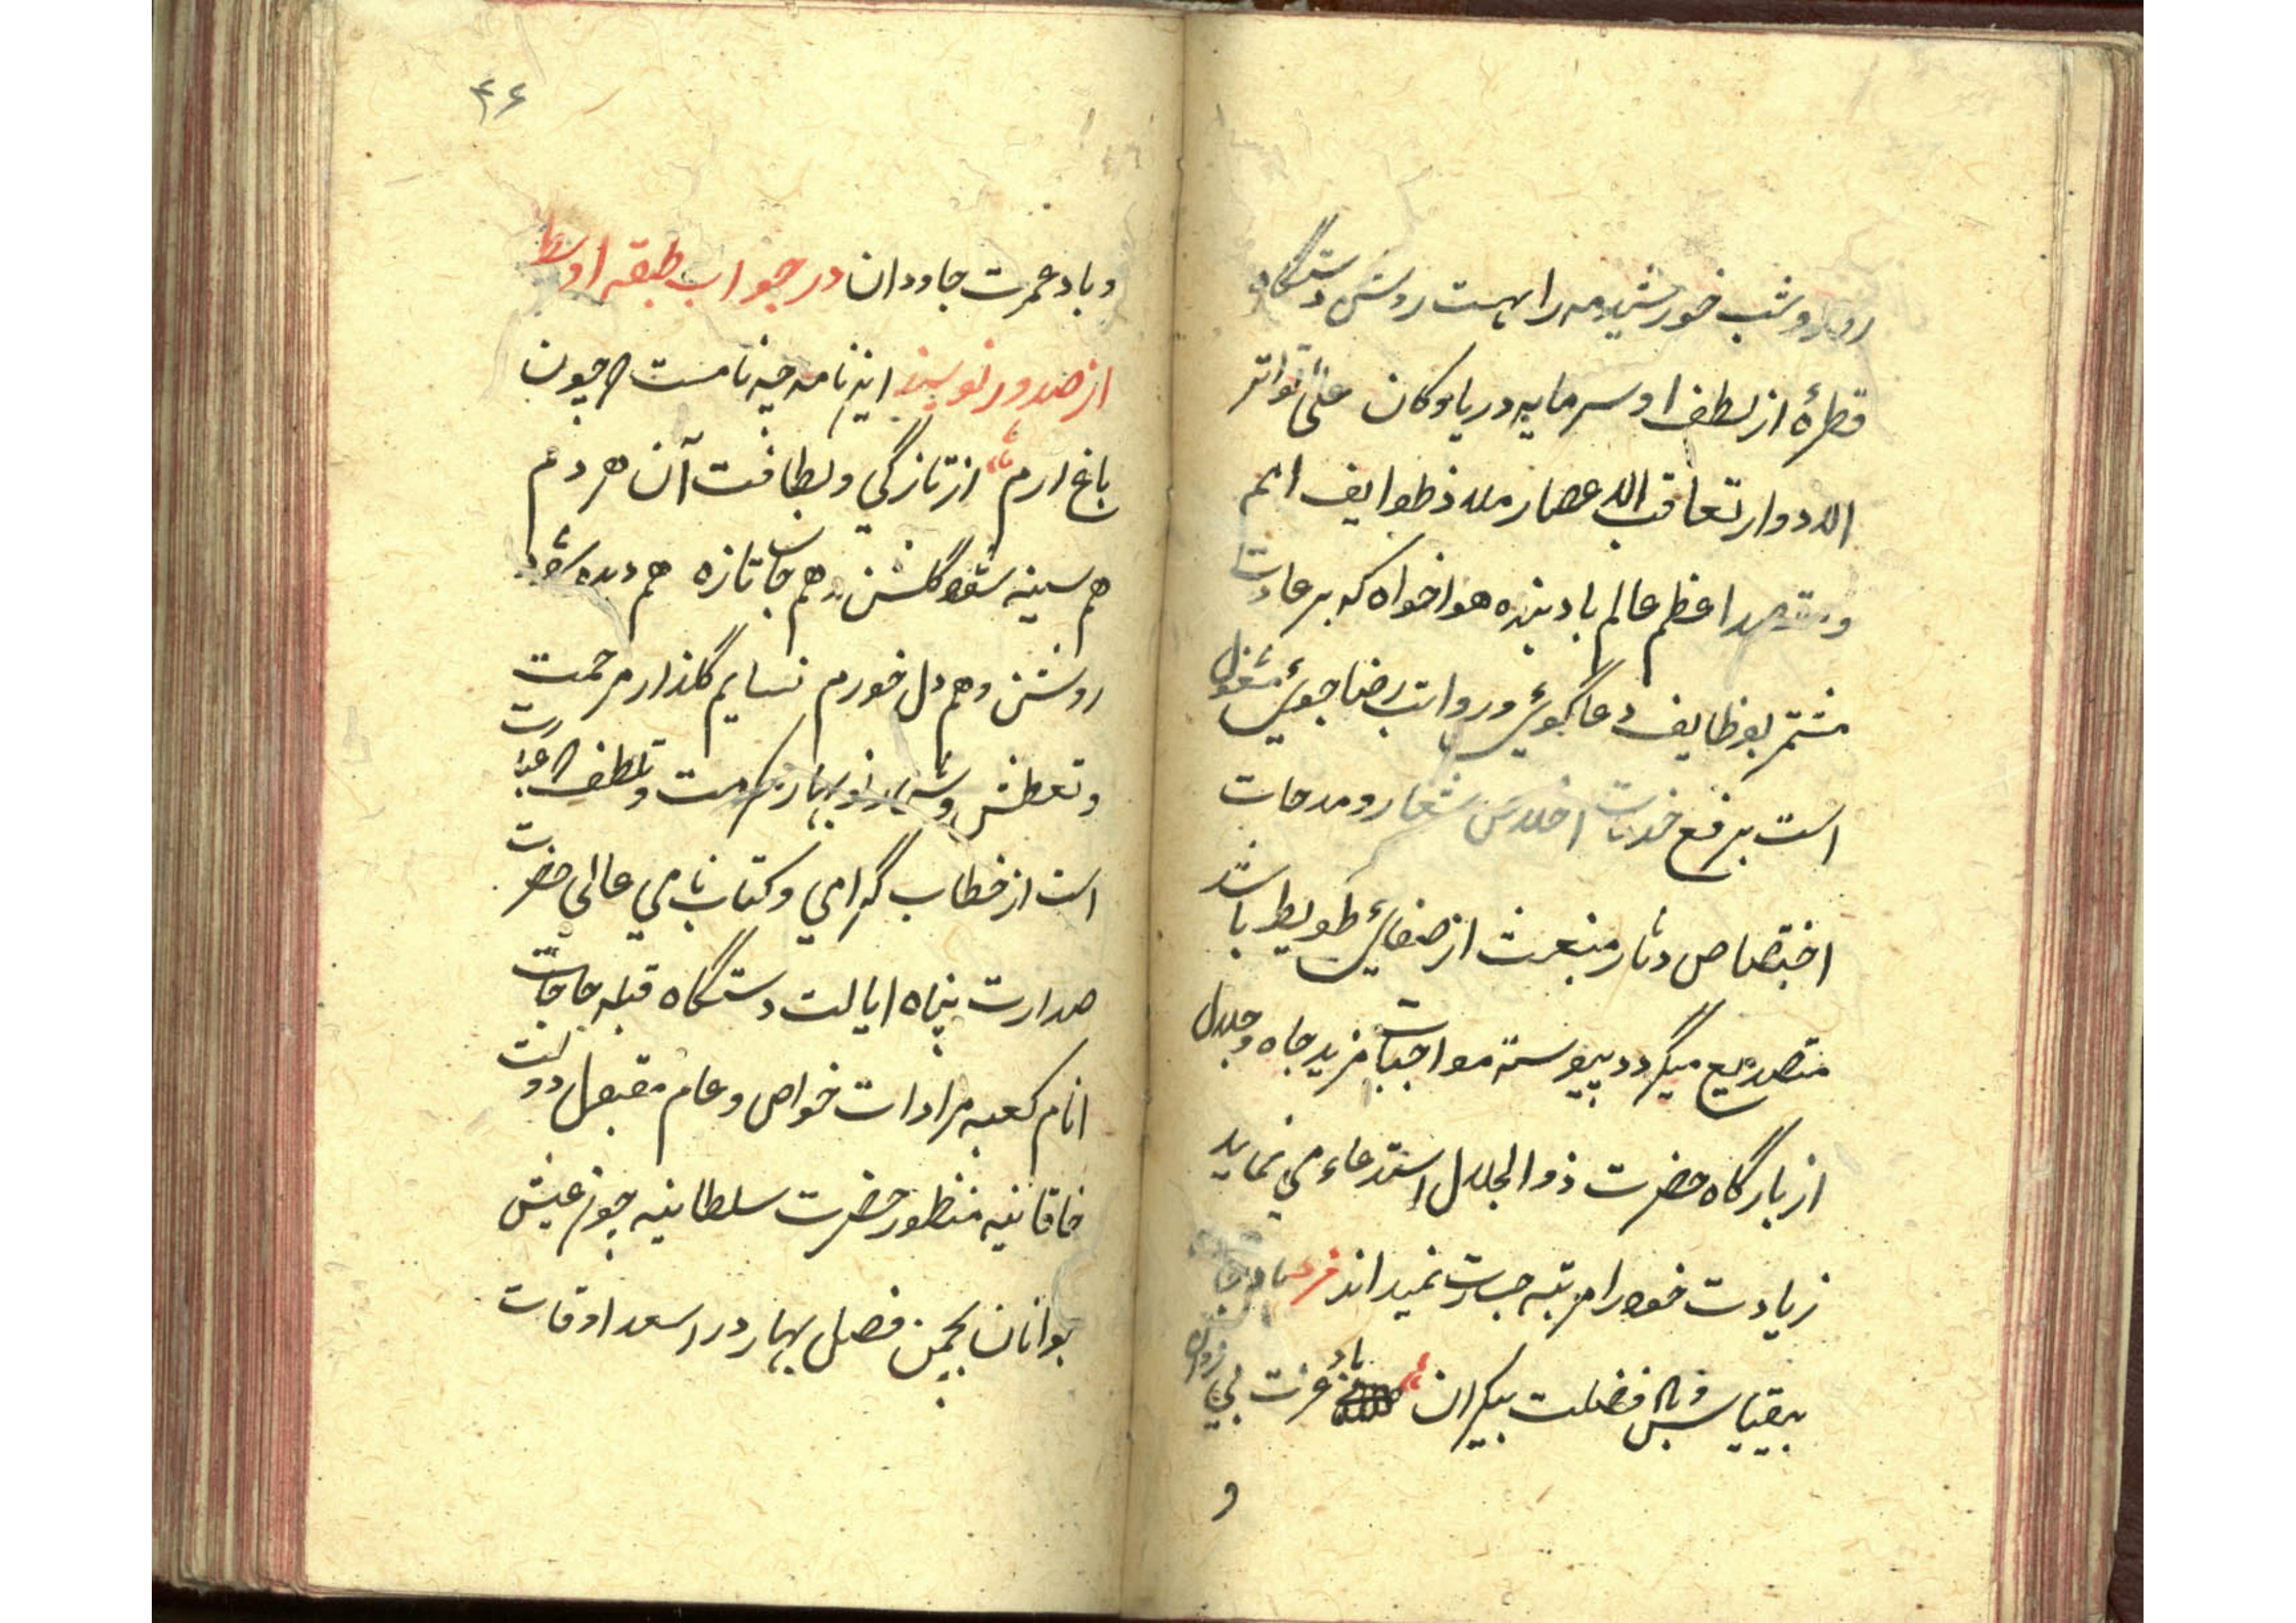 روز و شب خورشید و مه را هست روشن دستگاه
قطرهٔ از لطف او سرمایه دریا و کان علی تواتر
الادوار تعاقب الاعصار ملاذ طوایف امم
و مقصد اعظم عالم باد بنده هواخواه که بر عادت
مستمر بوظایف دعا گوئی و رواتب رضا جوئی مشغول
است برفع خدمات اخلاص شعار و مدحات
اختصاص دثار منبعث از صفای طویط باشد
متصدیع میگردد پیوسته مواجبات مزید جاه و جلال
از بارگاه حضرت ذو الجلال استدعاء می نماید
زیادت خود را مرتبه جسارت نمیداند فرد باد
بیقیاس فضلت بیکران باد عزت بی زوال
و
۴۶
و باد عمرت جاودان در جواب طبقه اوسط
از صدور نویسند این نامه چه نامست که چون
باغ ارم از تازگی و لطافت آن هر دم
هم سینه شود گلشن و هم جان تازه هم دیده شود
روشن و هم دل خورم نسایم گلذار مرحمت
و تعطف و نوبهار مکرمت و تلطف که عبارت
است از خطاب گرامی و کتاب نامی عالی حضرت
صدارت پناه ایالت دستگاه قبله حاجات
انام کعبه مرادات خواص و عام مقبول دولت
خاقانیه منظور حضرت سلطانیه چون عیش
بوانان بچمن فصل بهار در اسعد اوقات